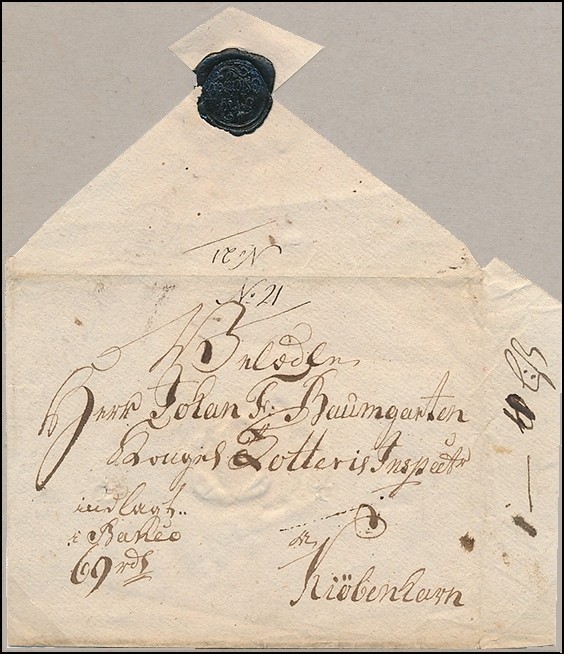 No: 21
No: 21
Velædle
Herr Johan F: Baumgarten
Kongel Lotterie Inspectr
indlagt
i Banco
69 rdl
a
Kiöbenhavn